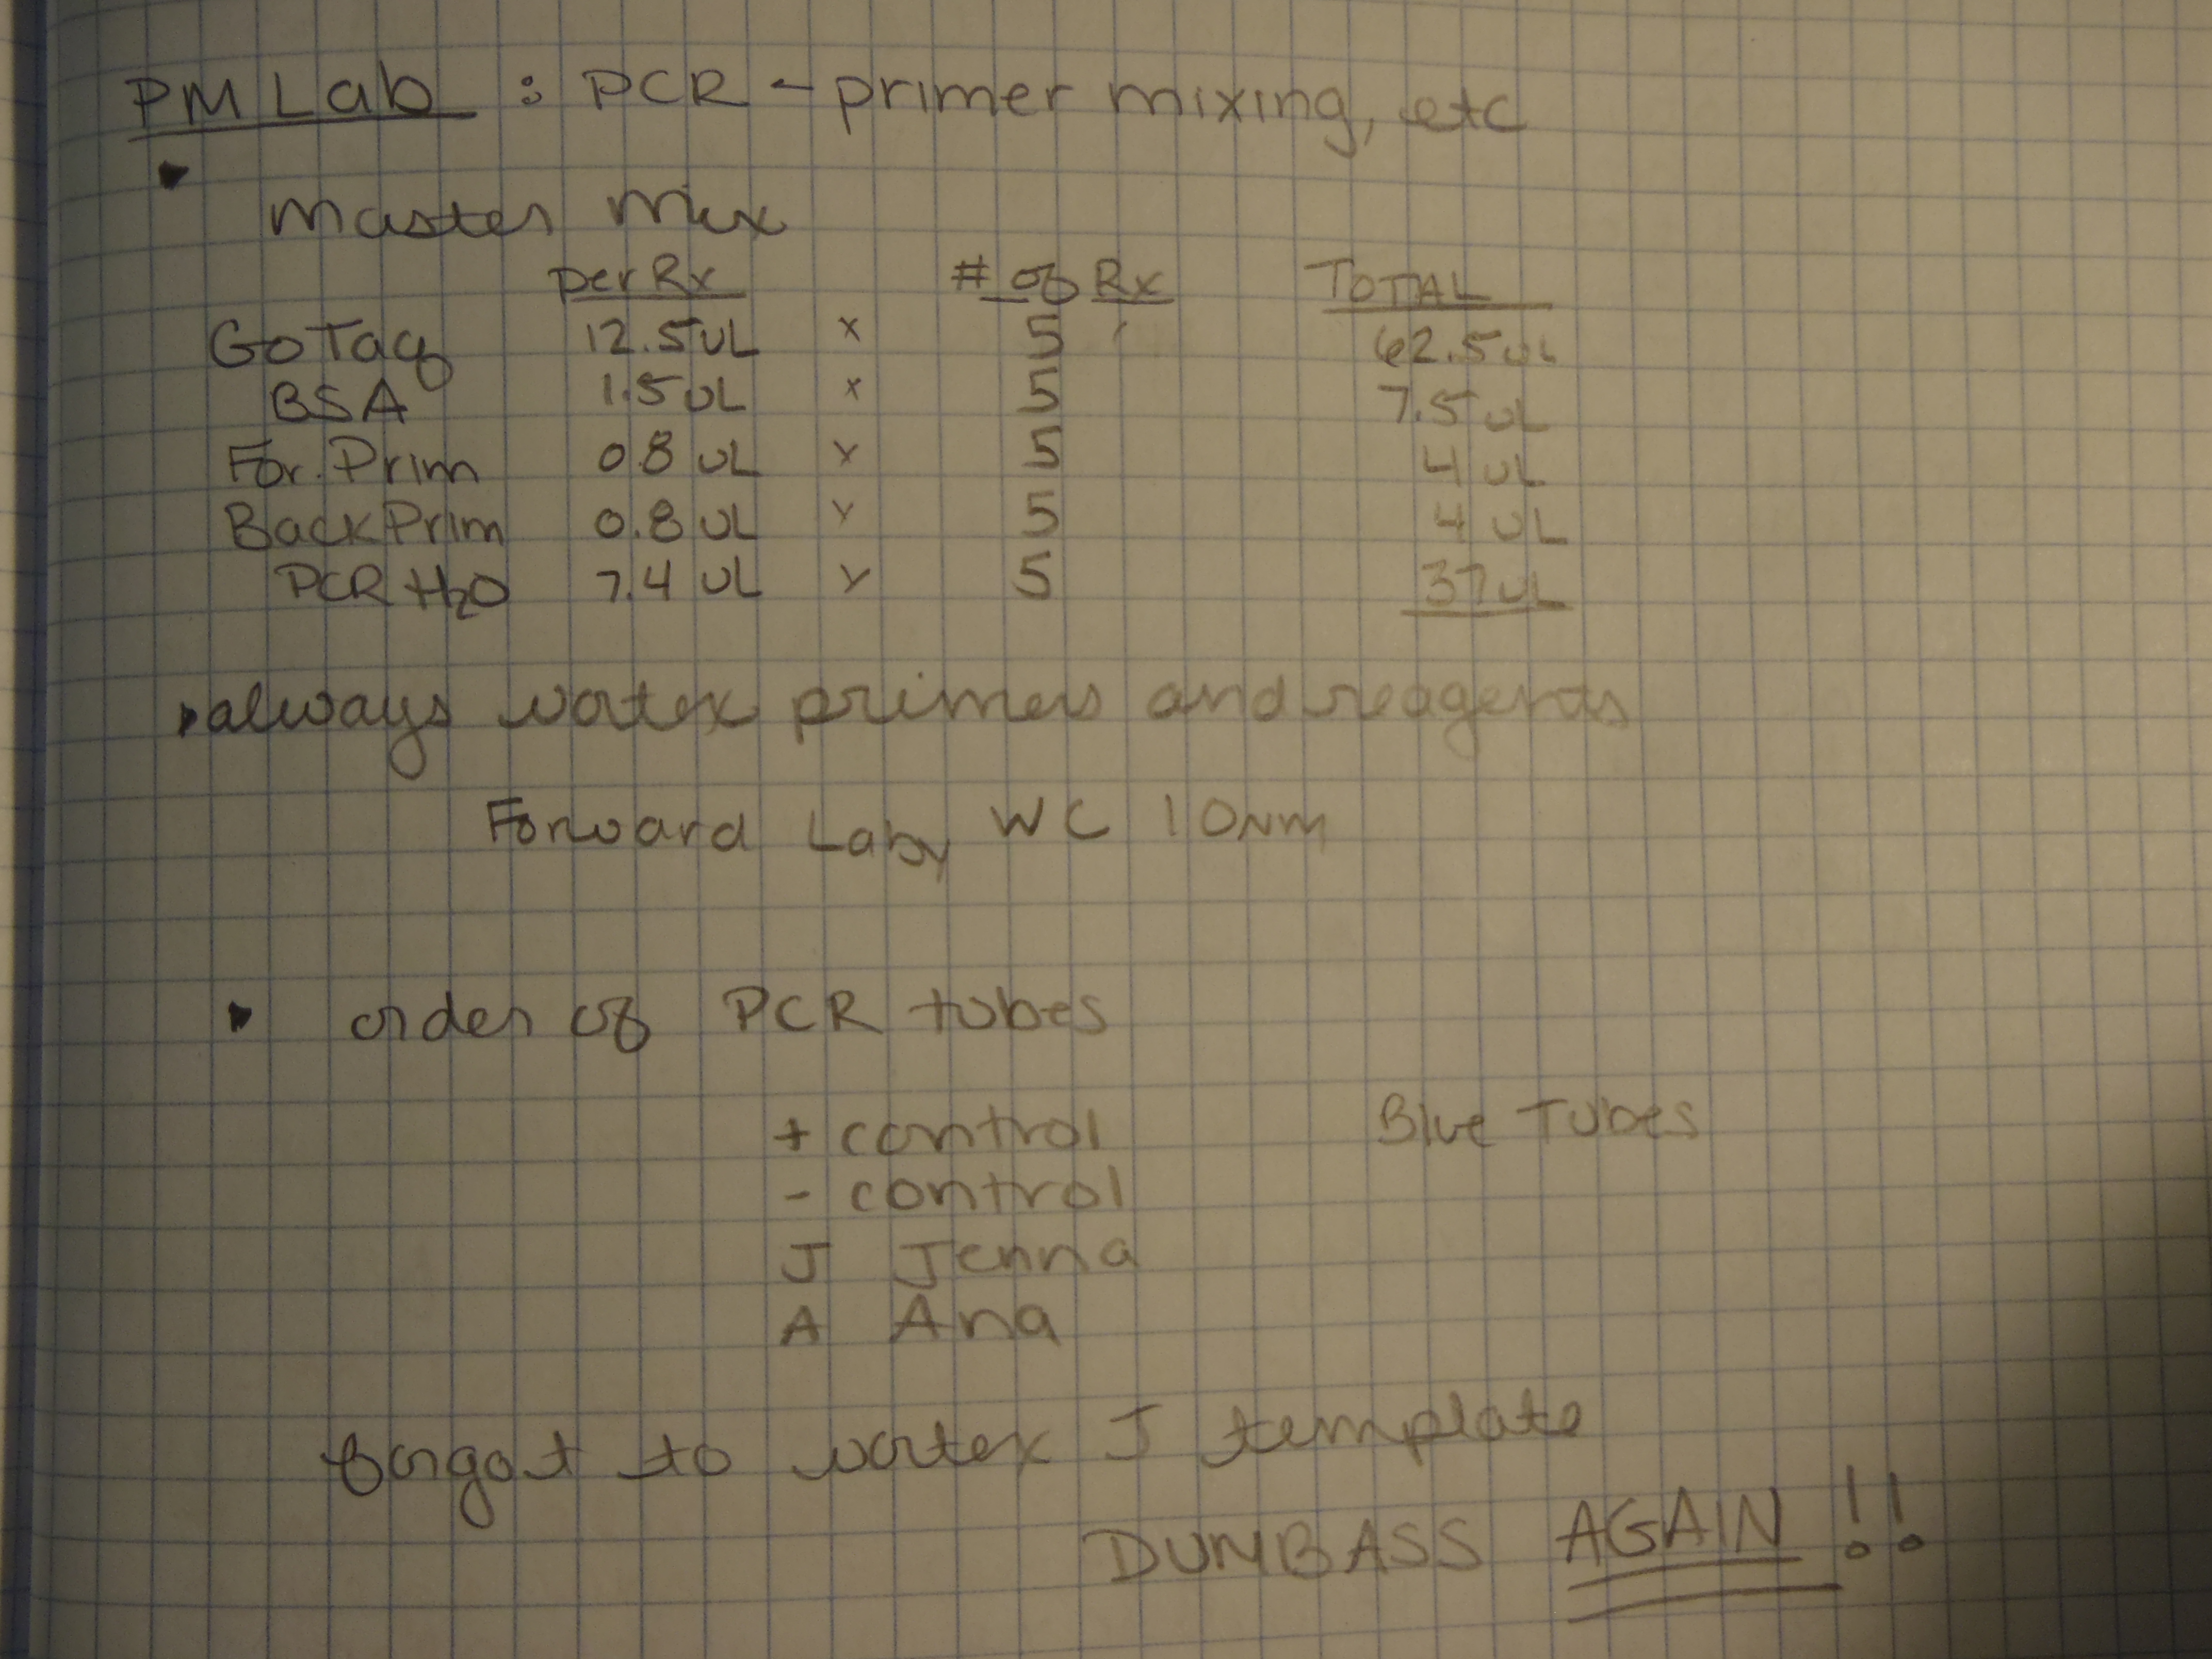 PM Lab : PCR - primer mixing, etc
master mix
per Rx # of Rx TOTAL
Go Taq 12.5 uL x 5 62.5 uL
BSA 1.5 uL x 5 7.5 uL
For. Prim 0.8 uL x 5 4 uL
Back Prim 0.8 uL x 5 4 uL
PCR H2O 7.4 uL x 5 37 uL
always vortex primers and reagents
Forward Laby WC 10 nm
order of PCR tubes
+ control Blue Tubes
- control
J Jenna
A Ana
forgot to vortex J template
DUMBASS AGAIN !!